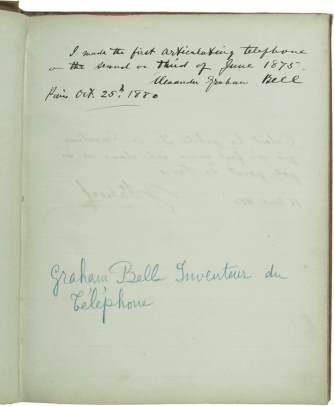 I made the first articulating telephone
on the second or third of June 1875.
Alexander Graham Bell
Paris Oct. 25th 1880
Graham Bell Inventeur du
Téléphone